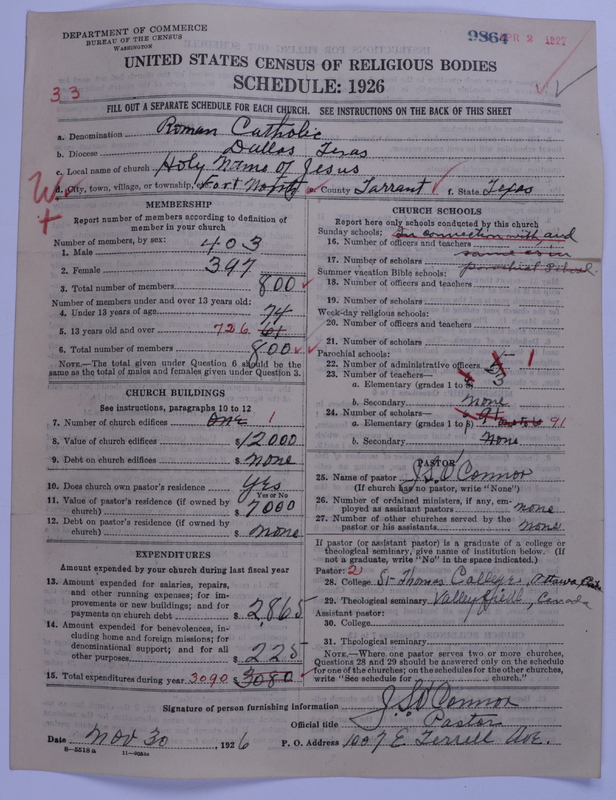 DEPARTMENT OF COMMERCE
BUREAU OF THE CENSUS
WASHINGTON
9864 APR 2 1927
UNITED STATES CENSUS OF RELIGIOUS BODIES
SCHEDULE: 1926
33
FILL OUT A SEPARATE SCHEDULE FOR EACH CHURCH. SEE INSTRUCTIONS ON THE BACK OF THIS SHEET
a. Denomination Roman Catholic
b. Diocese Dallas Texas
c. Local name of church Holy Name of Jesus
d. City, town, village, or township, Fort Worth e. County Tarrant f. State Texas
MEMBERSHIP
Report number of members according to definition of
member in your church
Number of members, by sex:
1. Male 403
2. Female 397
3. Total number of members 800
Number of members under and over 13 years old:
4. Under 13 years of age 74
5. 13 years old and over 726 61
6. Total number of members 800
NOTE.—The total given under Question 6 should be
same as the total of males and females given under Question 3.
CHURCH BUILDINGS
See instructions, paragraphs 10 to 12
7. Number of church edifices one 1
8. Value of church edifices $12000
9. Debt on church edifices $ none
10. Does church own pastor's residence yes
Yes or No
11. Value of pastor's residence (if owned by
church) $ 7000
12. Debt on pastor's residence (if owned by
church) $ none
EXPENDITURES
Amount expended by church during last fiscal year
13. Amount expended for salaries, repairs,
and other running expenses; for im-
provements or new buildings; and for
payments on church debt $ 2865
14. Amount expended for benevolences, in-
cluding home and foreign missions; for
denominational support; and for all
other purposes $ 225
15. Total expenditures during year 3090 $ 3080
CHURCH SCHOOLS
Report here only schools conducted by this church
Sunday schools: In connection with and
16. Number of officers and teachers
same as in
17. Number of scholars parochial school
Summer vacation Bible schools:
18. Number of officers and teachers
19. Number of scholars
Week-day religious schools:
20. Number of officers and teachers
21. Number of scholars
Parochial schools:
22. Number of administrative officers 1
23. Number of teachers—
a. Elementary (grades 1 to 8) 3
b. Secondary none
24. Number of scholars—
a. Elementary (grades 1 to 8) 91
b. Secondary None
PASTOR
25. Name of pastor J S O'Connor
(If church has no pastor, write "None")
26. Number of ordained ministers, if any, em-
ployed as assistant pastors none
27. Number of other churches served by the
pastor or his assistants none
If pastor (or assistant pastor) is a graduate of a college or
theological seminary, give name of institution below. (If
not a graduate, write "No" in the space indicated.)
Pastor: 2
28. College St Thomas College, Ottawa
29. Theological seminary Valleyfield, Canada
Assistant pastor:
30. College
31. Theological seminary
NOTE.—Where one pastor serves two or more churches,
Questions 28 and 29 should be answered only on the schedule
for one of the churches; on the schedules for the other churches,
write "See schedule for church."
Signature of person furnishing information J. S O'Connor
Official title Pastor
Date Nov 30, 1926 P. O. Address 1007 E. Terrell Ave.
8-5518a